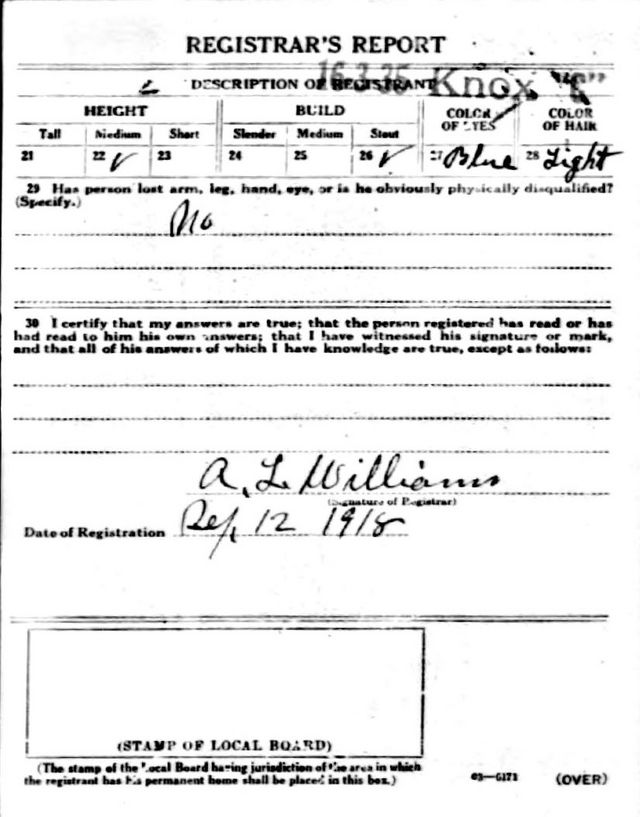 REGISTRAR'S REPORT
16-3-35 Knox "C"
DESCRIPTION OF REGISTRANT
HEIGHT BUILD COLOR OF EYES COLOR OF HAIR
Tall Medium Short Slender Medium Stout
21 22 ✓ 23 24 25 26 ✓ 27 Blue 28 Light
29 Has person lost arm, leg, hand, eye, or is he obviously physically disqualified?
(Specify.)
No
30 I certify that my answers are true; that the person registered has read or has
had read to him his own answers; that I have witnessed his signature or mark,
and that all of his answers of which I have knowledge are true, except as follows:
A. L. Williams
(Signature of Registrar)
Date of Registration Sep, 12 1918
(STAMP OF LOCAL BOARD)
(The stamp of the Local Board having jurisdiction of the area in which
the registrant has his permanent home shall be placed in this box.)
03—6171 (OVER)